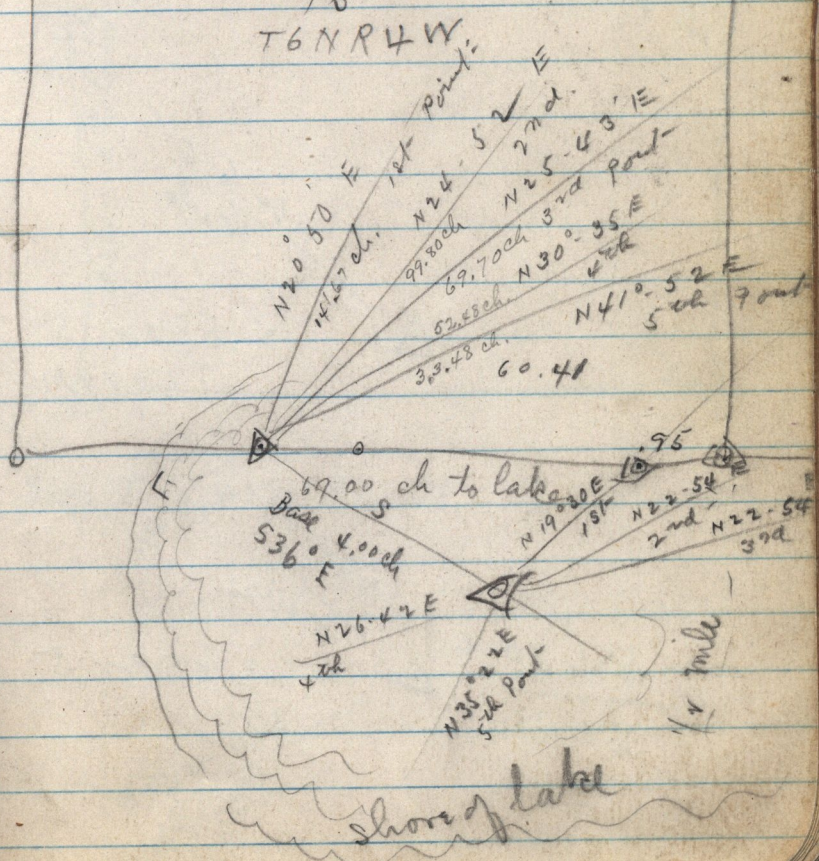 T6NR4W
N20° 50' E 1st Point
141.67 ch.
N24-52 E
2nd.
99.80ch
N25-43' E
69.70ch 3rd Point
N30°-35 E
4th
52.48ch.
N41°-52 E
5th Point
33.48 ch.
60.41
.95
69.00 ch to lake
Base 4.00ch
S36° E
N19°30E
1st
N22-54
2nd
N22-54
3rd
N26-42E
4th
N35°22E
5th Point
1/2 mile
Shore of lake